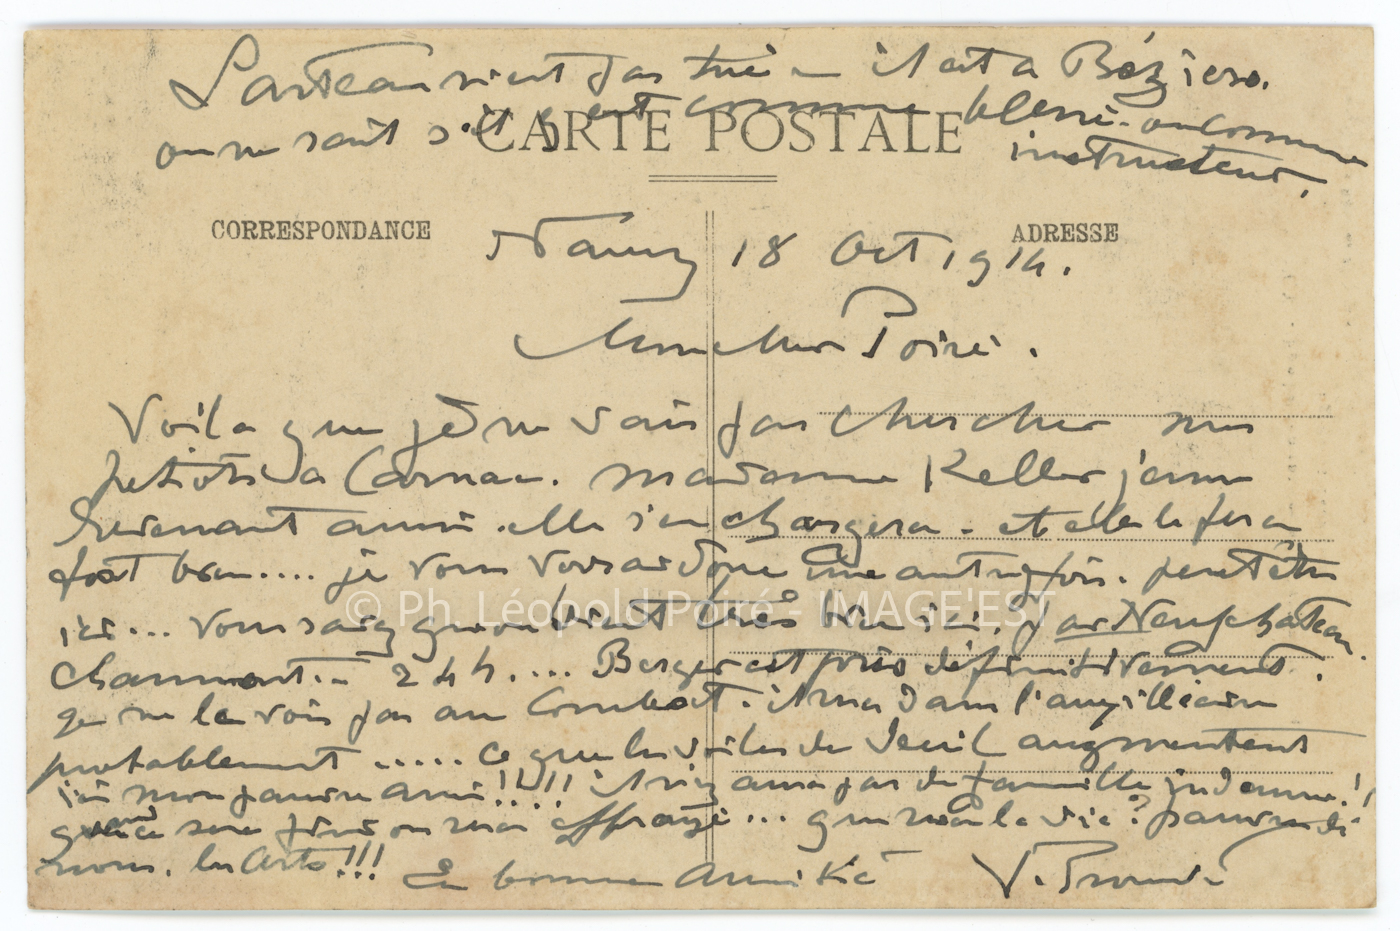 Larteau n'est pas tué — il est a Béziers.
on ne sait s'il y est comme blessé - ou comme
instructeur.
CARTE POSTALE
CORRESPONDANCE
ADRESSE
Nancy 18 Oct 1914.
Mon cher Poiré.
Voila que je ne vais pas chercher mes
petiots a Carnac. Madame Keller
revenant aussi. elle s'en chargera - et elle le fera
fort bien.... je vous verrai donc une autre fois. peut être
ici... vous savez qu'on vient très bien ici. par Neufchateau.
Chaumont... 24 h.... Berger est pris définitivement.
je ne le vois pas au Combat. il ira dans l'auxilliaire
probablement ..... Ce que les voiles de deuil augmentent
ici mon pauvre ami!!!!! il n'y aura pas de famille indemne!!
quand ce sera fini on sera effrayé... que sera la vie? pauvre de
nous. les Arts!!!
En bonne Amitié V. Prouvé
© Ph. Léopold Poiré - IMAGE'EST